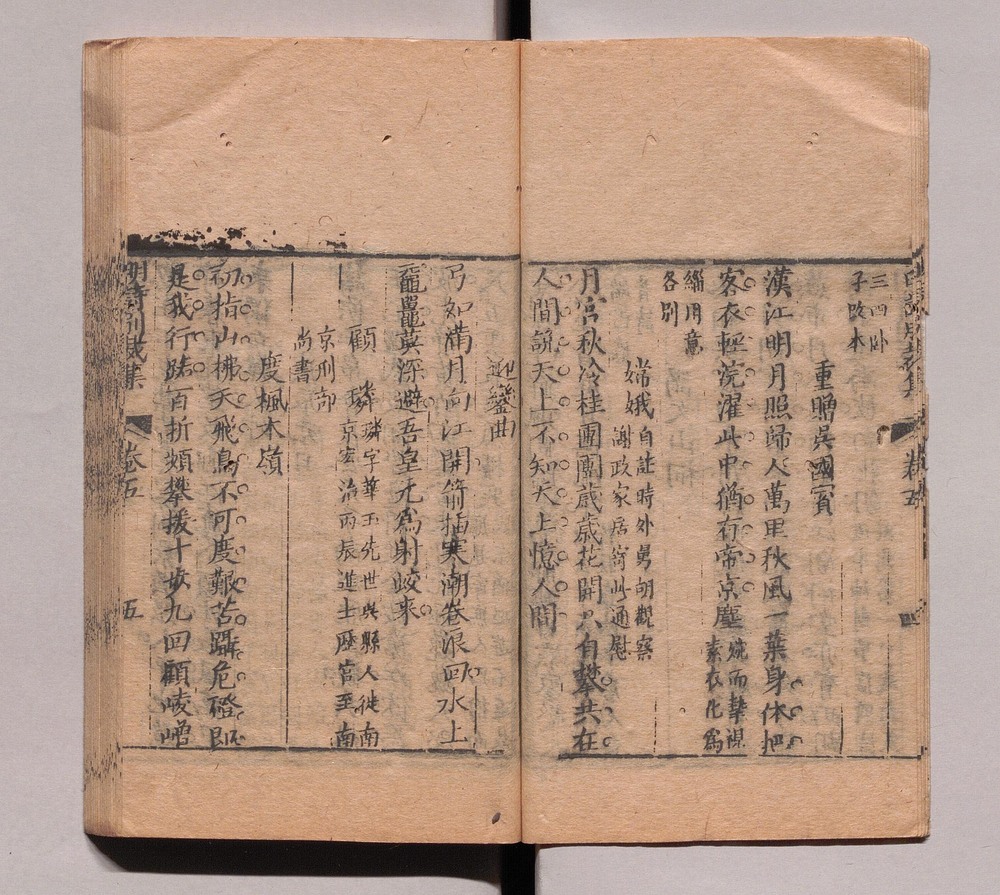 明詩別裁集 卷五 四
三四卧
子改本
重贈吳國賓
漢江明月照歸人萬里秋風一葉身休把
客衣輕浣濯此中猶有帝京塵
婉而摯視
素衣化爲
緇用意
各別
嫦娥
自註時外舅胡觀察
謝政家居寄此通慰
月宮秋冷桂團團歲歲花開只自攀共在
人間說天上不知天上憶人間
迎鑾曲
弓如滿月向江開箭插寒潮卷浪回水上
黿鼉莫深避吾皇元爲射蛟來
顧璘
璘字華玉先世吳縣人徙南
京宏治丙辰進士歷官至南
京刑部
尚書
度楓木嶺
初指山拂天飛鳥不可度艱苦躡危磴即
是我行路百折頻攀援十步九回顧崚嶒
明詩別裁集 卷五 五